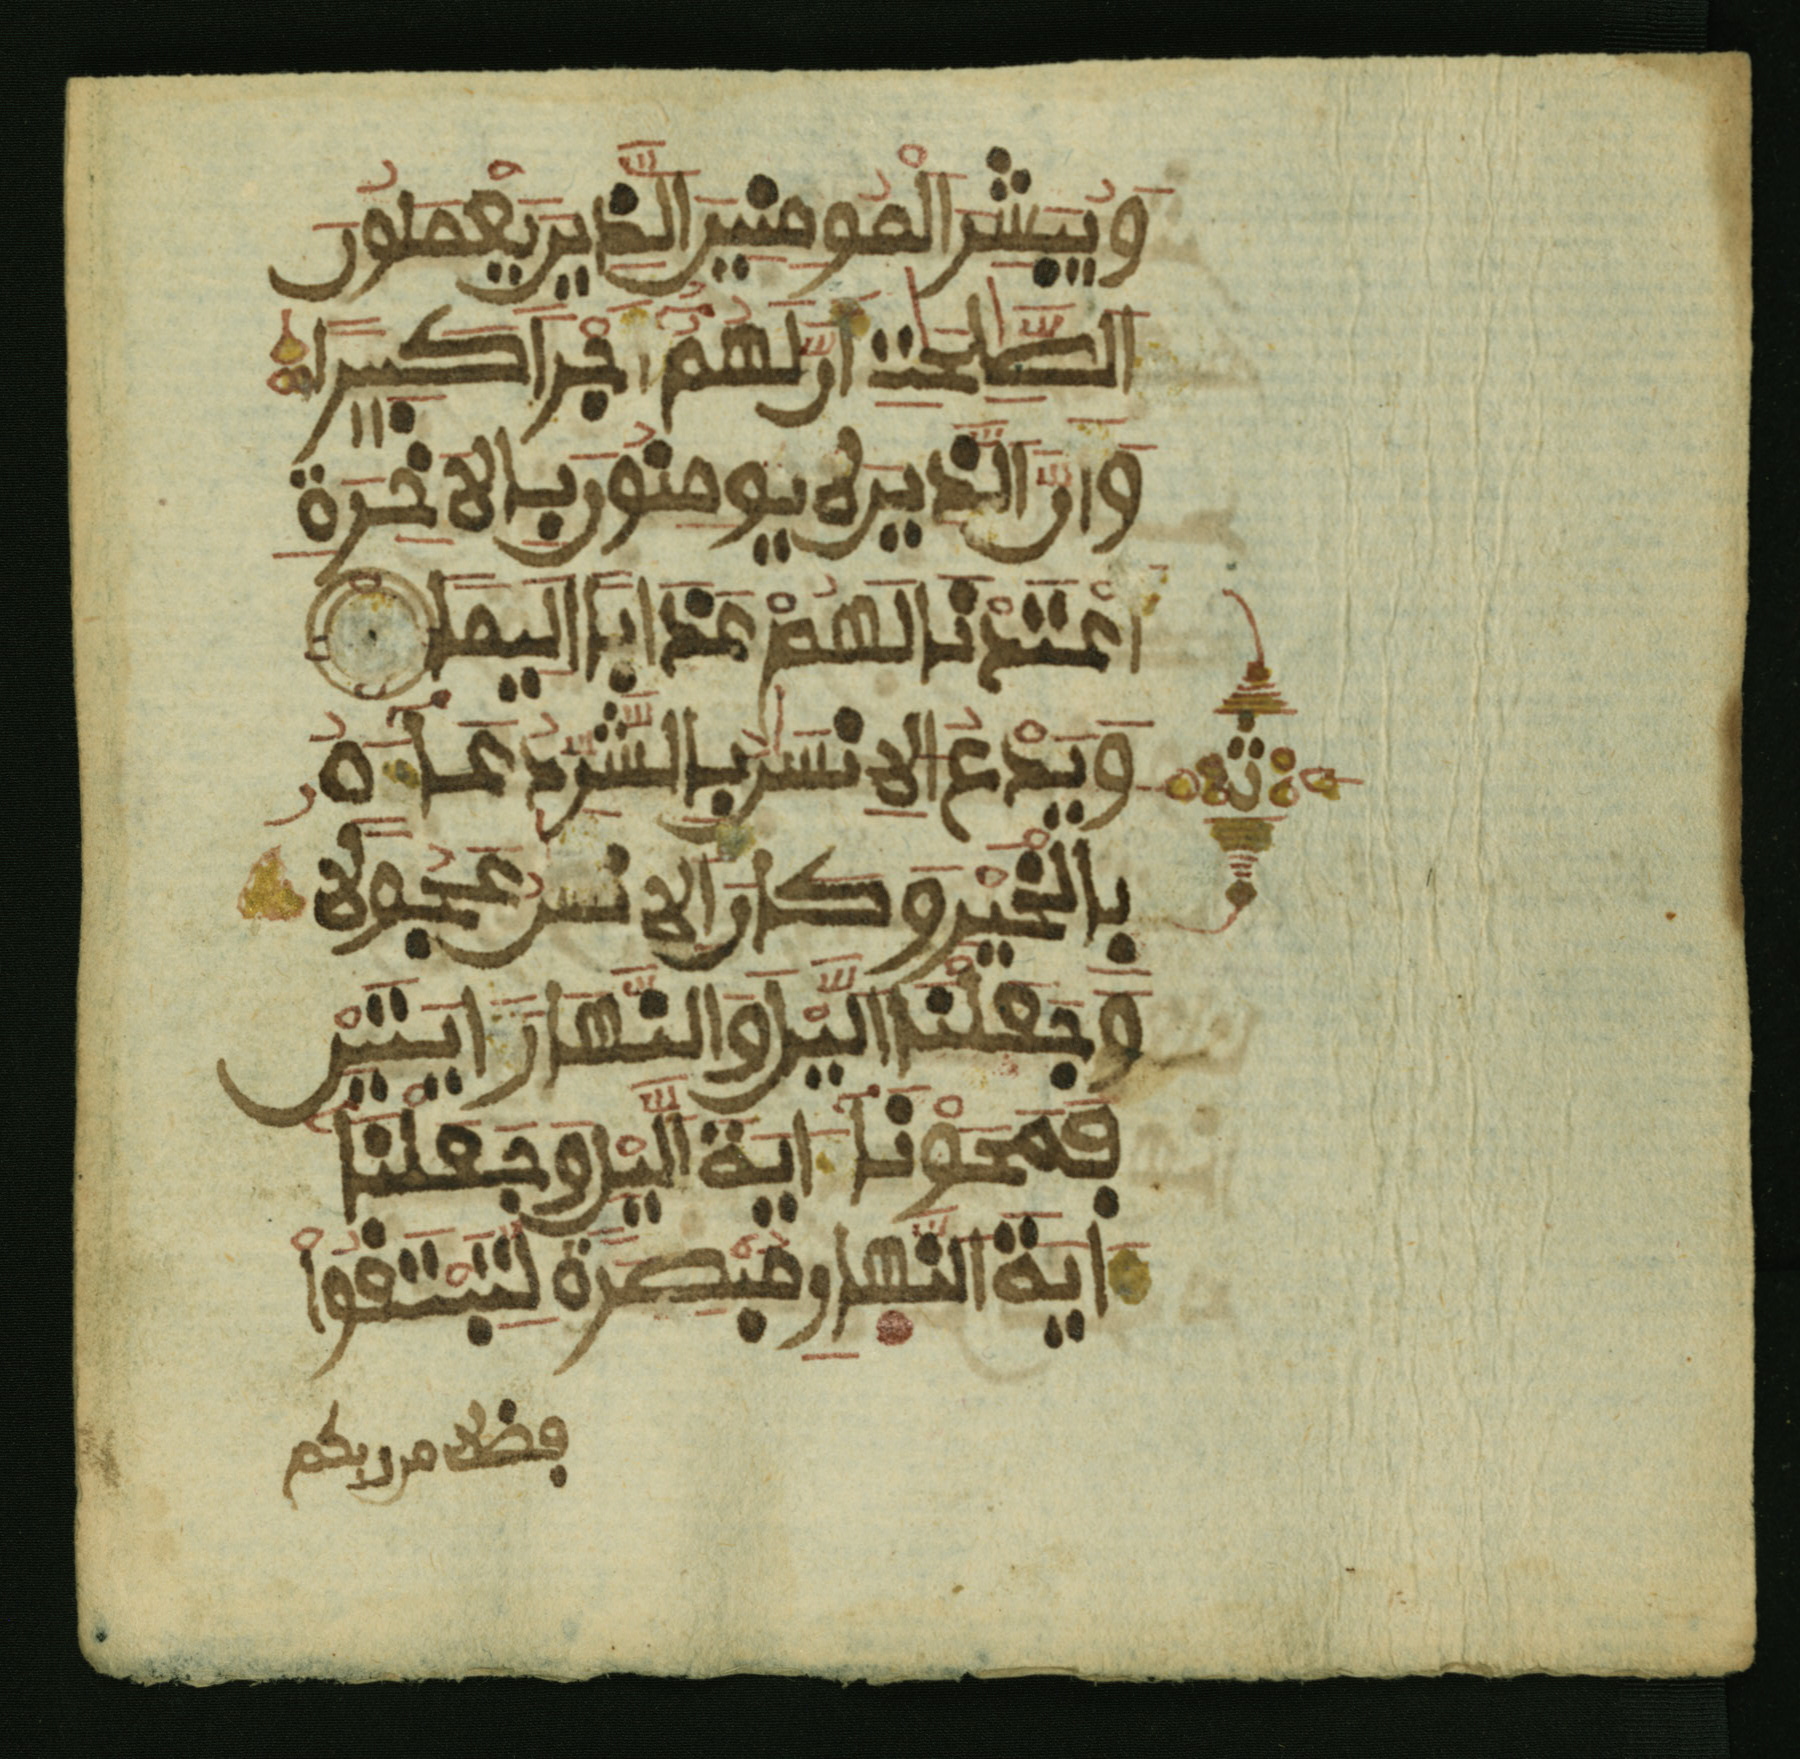 وَيُبَشِّرُ الْمُومِنِينَ الَّذِينَ يَعْمَلُونَ
الصَّلِحَتِ أَنَّ لَهُمُ أَجْرًا كَبِيرًا
وَأَنَّ الَّذِينَ لَا يُومِنُونَ بِالَاخِرَةِ
أَعْتَدْنَا لَهُمْ عَذَابًا الِيمًا
وَيَدْعُ الِانسَنُ بِالشَّرِّ دُعَاءَهُ
بِالْخَيْرِ وَكَانَ الِانسَنُ عَجُولًا
وَجَعَلْنَا اليْلَ وَالنَّهَارَ ايَتَيْنِ
فَمَحَوْنَا ايَةَ اليْلِ وَجَعَلْنَا
ايَةَ النَّهِارِ مُبْصِرَةً لِّتَبْتَغُواْ
فضلا من ربكم